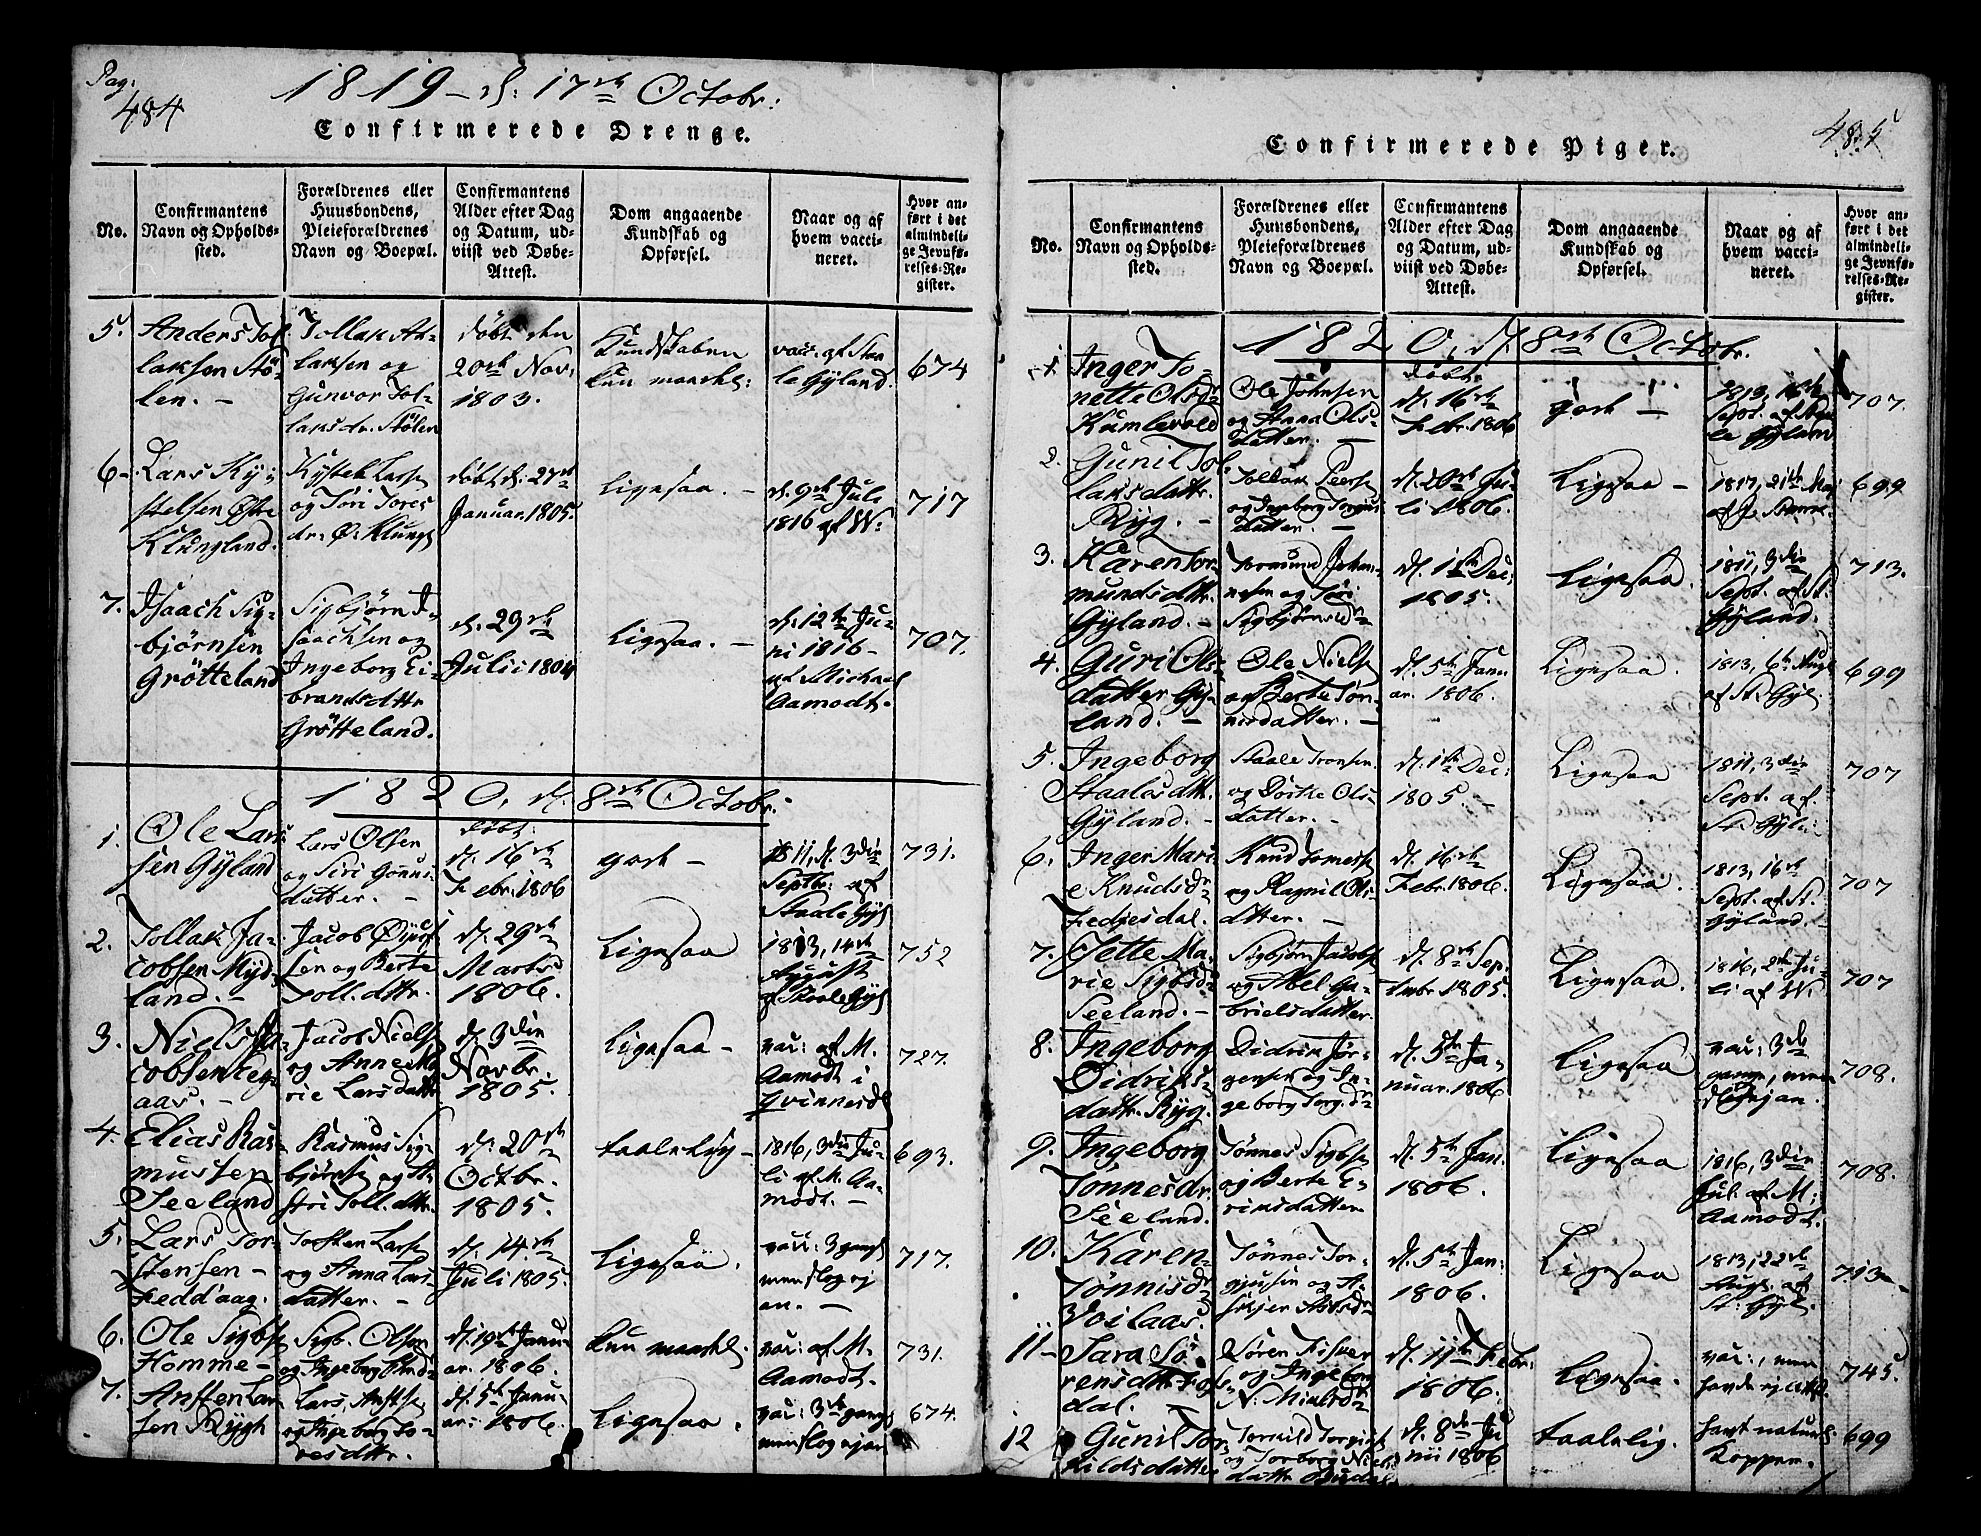 Pag:
484
1819 – d. 17de Octobr:
Confirmerede Drenge.
No.
Confirmantens
Navn og Opholds-
sted.
Forældrenes eller
Huusbondens,
Pleieforældrenes
Navn og Boepæl.
Confirmantens
Alder efter Dag
og Datum, ud-
viist ved Døbe-
Attest.
Dom angaaende
Kundskab og
Opførsel.
Naar og af
hvem vacci-
neret.
Hvor an-
ført i det
almindeli-
ge Jevnfø-
relses-Re-
gister.
5.
Anders Tol-
laksen Stö-
len. –
Tollak At-
laksen og
Gunvor Tol-
laksdr. Stölen
döbt den
20de Nov:
1803.
Kundskaben
kun maadel:
vac. af Staa-
le Gyland.
674
6–
Lars Ky-
stelsen Øst
Klungland.
og Töri Tores
dr: Ø: Klungl
döbt d. 27de
Januar. 1805.
Ligesaa. –
d. 9de Juli
1816 af W:
717
7.
Isaach Sig-
björnsen
Grötteland
Sigbjörn I-
saachsen og
Ingeborg Ei-
brandsdttr
Grötteland.
d. 29de
Julii 1804
Ligesaa. –
d. 12te Ju-
ni 1816 –
af Michael
Aamodt.
707.
1820, d. 8de Octobr:
1.
Ole Lars
sen Gyland
Lars Olsen
og Siri Gunus-
datter. –
döbt:
d. 16de
Febr: 1806
godt –
1811, d. 3die
Septbr: af
Staale Gyl
731.
2.
Tollak Ja-
cobsen Myd-
land. –
Jacob
sen og Berte
Toll.dttr.
d. 29de
Marts
1806.
Ligesaa
1813, 14de
August
af Staale Gyl
752
3.
Niels Ja-
cobsen Eeg-
aas. –
Jacob Niels
og Anne Ma-
rie Larsdattr
d. 3die
Novbr.
1805.
Ligesaa –
vac: af M.
Aamodt i
Qvinnesd
727.
4.
Elias Ras-
mussen
Seeland
Rasmus Sig-
björns og A-
stri Toll.dttr.
d. 20de
Octbr.
1805.
taalelig –
1816, 3die Ju-
li af M. Aa-
modt. –
693.
5.
Lars Tor-
stensen –
Fedd'aag.
Torsten Lars
og Anna Lars
datter. –
d. 14de
Juli 1805.
Ligesaa.
vac: 3 gange
men slog ej
an. –
717.
6.
Ole Sigbs
Homme –
Sigb. Olsen
og Ingeborg
d. 19de Janu-
ar. 1806.
kun maadel.
vac: af M.
Aamodt.
731.
7.
Ansten Lar-
sen Rygh
Lars Anst
og Ingeborg To-
resdttr.
d. 5te Janu-
ar: 1806.
Ligesaa.
vac: 3de gange
men slog ej an
674.
485
Confirmerede Piger.
No.
Confirmantens
Navn og Opholds-
sted.
Forældrenes eller
Huusbondens,
Pleieforældrenes
Navn og Boepæl.
Confirmantens
Alder efter Dag
og Datum, ud-
viist ved Døbe-
Attest.
Dom angaaende
Kundskab og
Opførsel.
Naar og af
hvem vacci-
neret.
Hvor an-
ført i det
almindeli-
ge Jevnfø-
relses-Re-
gister.
1820, d. 8de Octobr.
1
Inger To-
nette Olsdr
Kumlevold
Ole Johnsen
og Anna Ols-
datter. –
döbt:
d. 16de
Febr. 1806
godt –
1813, 16de
Sept. af Staa-
le Gyland
707.
2.
Gunil Tol-
laksdattr.
Ryg. –
Tollak Peers
og Ingeborg Torgius
datter. –
d. 20de Ju-
li 1806.
Ligesaa –
1817, 21de Maj
699
3.
Karen Tor-
mundsdttr.
Gyland. –
Tormund Johan-
nesen og Töri
Sigbjörnsdr
d. 1ste Dec:
1805.
Ligesaa.
1811, 3die
Sept. af St.
Gyland.
713.
4.
Guri Ols-
datter Gy-
land. –
Ole Niels
og Berte Tön-
nesdatter. –
d. 5te Janu-
ar. 1806.
Ligesaa.
1813, 6te Aug.
af St: Gyl:
699
5.
Ingeborg
Staalesdttr.
Gyland. –
Staale Tronsen
og Dorthe Ols-
datter. –
d. 1ste Dec:
1805. –
Ligesaa
1811, 3die
Sept. af.
St. Gyl:
707
6.
Inger Mari-
e Knudsdr
Fedjesdal.
Knud
og Ragnil Ols-
datter. –
d. 16de
Febr. 1806.
Ligesaa.
1813, 16de
Sept. af St.
Gyland. –
707
7.
Jette Ma-
rie Sigbsdr
Seeland. –
Sigbjörn Jacobs
og Abel Ga-
brielsdatter.
d. 8de Sep-
tembr. 1805.
Ligesaa.
1816, 2den Ju-
li af W.
707
8.
Ingeborg
Didriks-
dattr. Ryg.
Didrik Jör-
gensen og In-
geborg Torg.dr
d. 5te Ja-
nuar. 1806.
Ligesaa
vac: 3de
gange, men
slog ej an.
708.
9.
Ingeborg
Tönnesdr.
Seeland.
Tönnes Sigbs
og Berte E-
riksdatter
d. 5te Jan.
1806.
Ligesaa
1816, 3die
Jul. af M:
Aamodt.
708.
10.
Karen
Tönnisdr
Voilaas.
Tönnes Tor-
gjusen og A-
d. 5te Jan:
1806.
Ligesaa
1813, 22de
Aug. af
St: Gyl.
713
11–
Sara Sö-
rensdttr
dal. –
Sören Fisker
og Ingeborg
d. 11te Febr:
1806.
Ligesaa.
vac:, men
havde ej Attest
745.
12
Gunil Tor-
kildsdatter
Torkild
og Torborg Niels
dattr
d. 8de Ju-
nii 1806
taalelig.
havt naturl:
Kopper.
699